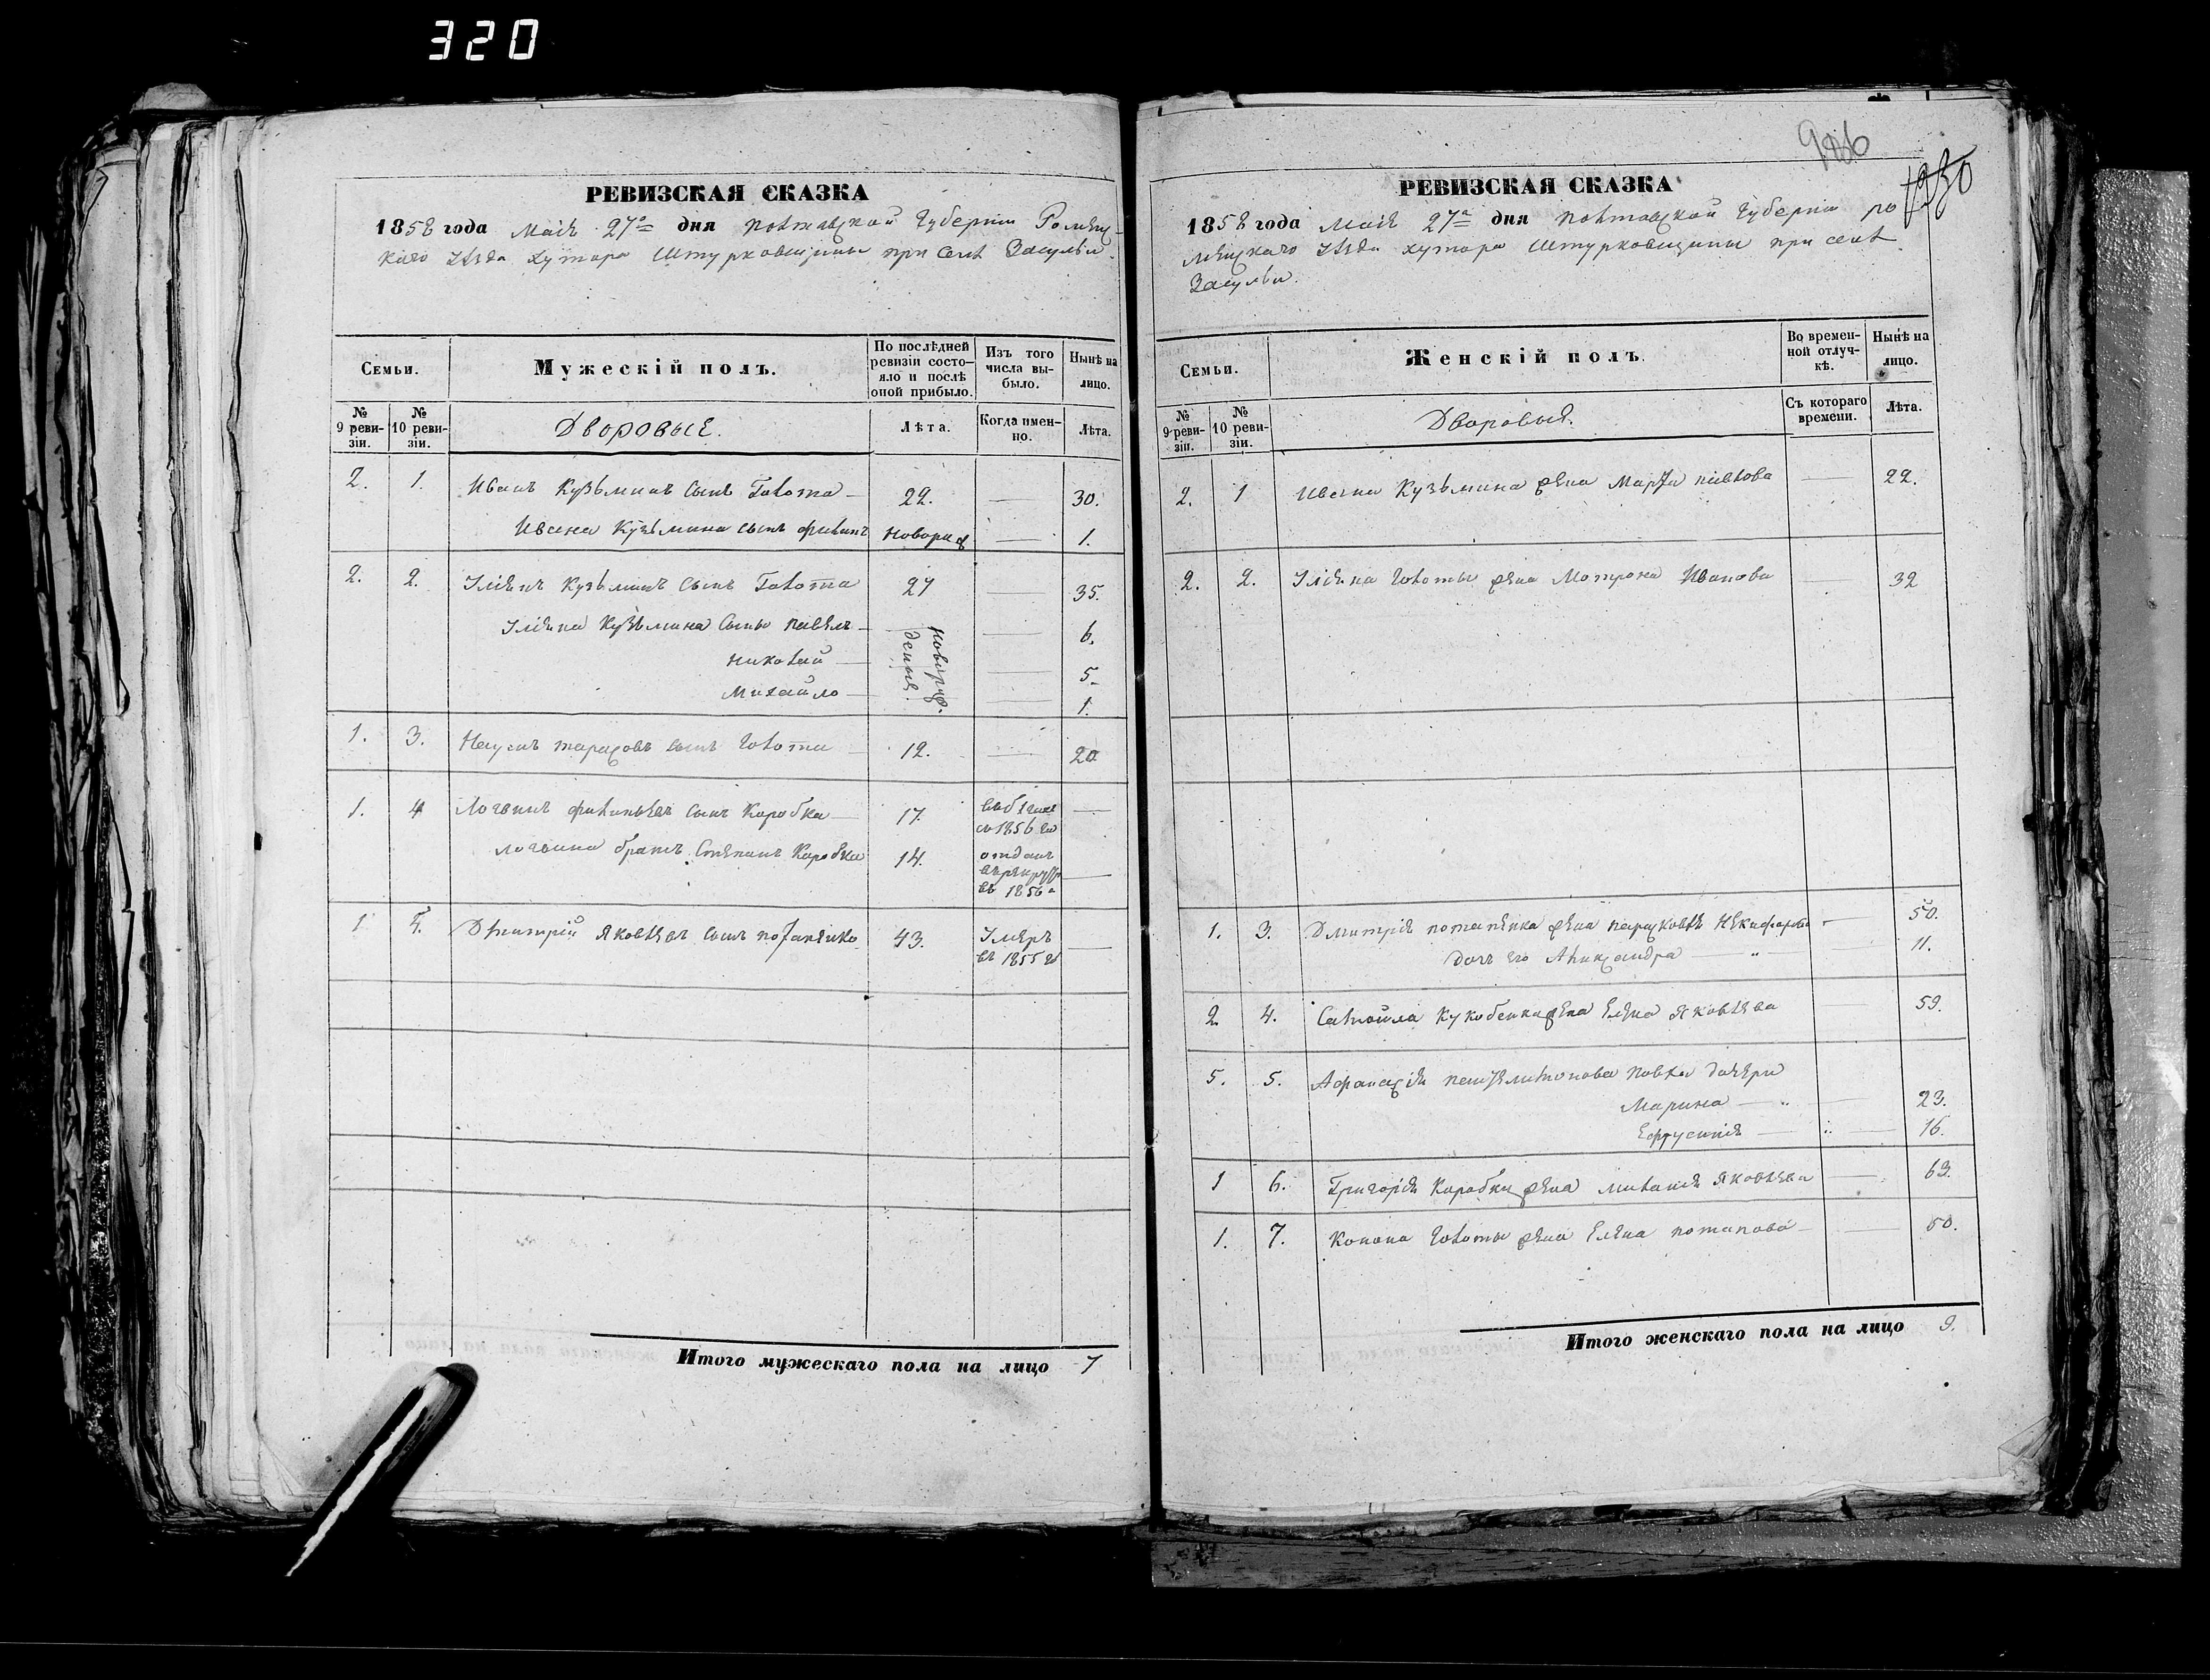 320
РЕВИЗСКАЯ СКАЗКА
1858 года Маія 27го дня Полтавской Губерніи Роменс-
каго Уѣзда хутора Штурковщины при селѣ Засульи.
Семьи.
Мужескій полъ.
По послѣдней ревизіи состо-яло и послѣ оной прибыло.
Изъ того числа вы-было.
Нынѣ на лицо.
№ 9 реви-зіи.
№ 10 реви-зіи.
Дворовые.
Лѣта.
Когда имен-но.
Лѣта.
2. 1. Иванъ Кузьминъ сынъ Голота — 22. — 30.
Ивана Кузьмина сынъ Филипъ новорож — 1.
2. 2. Уліянъ Кузьминъ сынъ Голота 27 — 35.
Уліяна Кузьмина сыны Павелъ — новорож-денные. — 6.
Николай — — 5.
Михайло — — 1.
1. 3. Наумъ Тарасовъ сынъ Голота — 12. — 20
1. 4 Логвинъ Филипьевъ сынъ Коробка — 17. въ бѣгахъ —
съ 1856 го
Логвина братъ Степанъ Коробка 14. отданъ
въ рекруты —
въ 1856 г
1 5. Дмитрій Яковлевъ сынъ Потапенко 43. Умеръ —
въ 1855 го
Итого мужескаго пола на лицо 7
986
1930
РЕВИЗСКАЯ СКАЗКА
1858 года Маія 27го дня Полтавской Губерніи Ро
менскаго Уѣзда хутора Штурковщины при селѣ
Засульи.
Семьи.
Женскій полъ.
Во времен-ной отлуч-кѣ.
Нынѣ на лицо.
№ 9 реви-зіи.
№ 10 реви-зіи.
Дворовыя.
Съ котораго времени.
Лѣта.
2. 1 Ивана Кузьмина жена Марфа Павлова — 22.
2. 2. Уліяна Голоты жена Мотрона Иванова — 32
1. 3. Дмитрія Потапенка жена Парасковѣя Никифорова — 50.
дочь его Александра — " — 11.
2 4. Самойла Кукобенка жена Елена Яковлева — 59.
5. 5. Афанасія Павла дочери
Марина — " — 23.
Ефрусинія — " — 16.
1 6. Григорія Коробки жена Миланія Яковлева — 63.
1. 7. Конона Голоты жена Елена Потапова — — 50.
Итого женскаго пола на лицо 9.